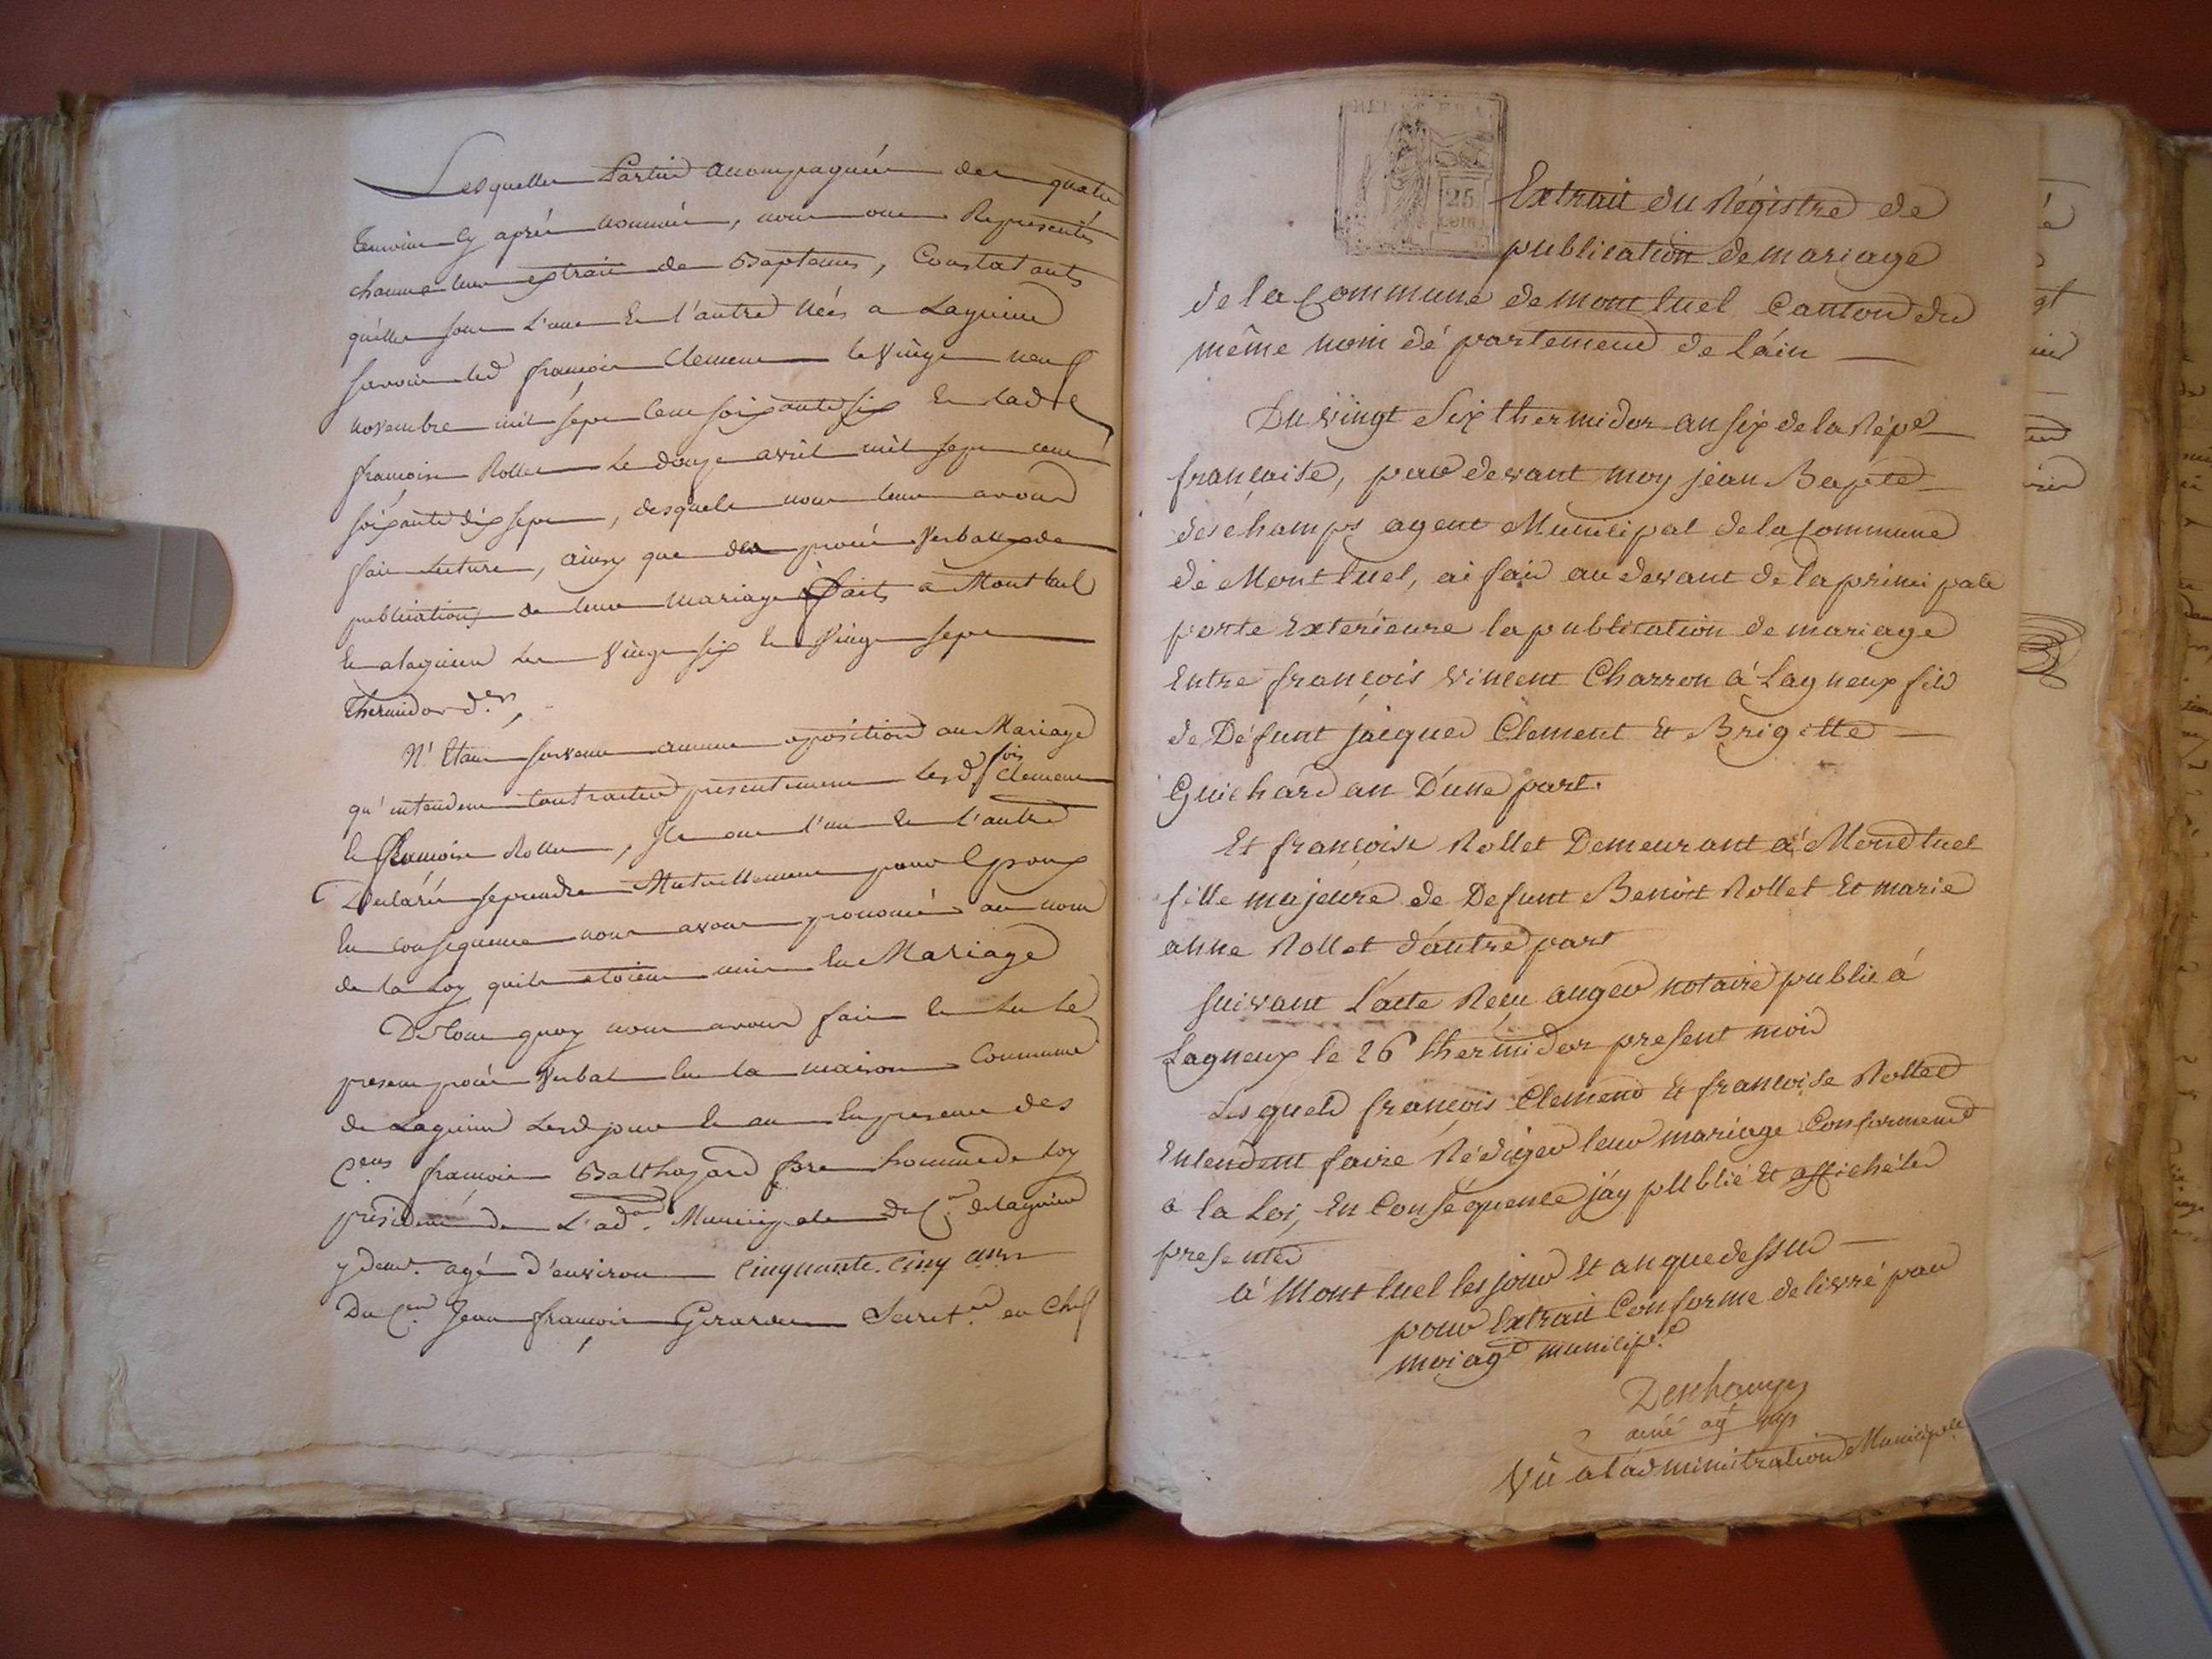 Lesquelles Parties accompagnées des quatre
temoins cy après nommés, nous ont Representés
chacune leur extrait de Baptemes, Constatants
quelles sont L'une Et l'autre Néés a Lagnieu
savoir led françois Clement le Vingt neuf
novembre mil sept Cent soixante six Et lad.e
françoise Rollet Le douze avril mil sept cent
soixante dix sept, desquels nous leur avons
fait Lecture, ainsy que des procés Verbaux de
publications de leur mariage faits a Montluel
Et a lagnieu les Vingt six Et Vingt sept
Thermidor d.er,
N'Etant survenu aucune oposition au Mariage
qu'entendent Contracter présentement Lesd fois Clement
Et françoise Rollet, Ils ont l'un Et l'autre
Déclaré se prendre Mutuellement pour Epoux
En conséquence nous avons prononcé au nom
de la Loy quils etoient unis En Mariage
De tout quoy nous avons fait Et Lu Le
present procés Verbal En la maison Commune
de Lagnieu Lesd jour Et an En presence des
C.ens françois Balthazard homme de Loy
président de L'ad.on Municipale du C.on de lagnieu
y demt. agé d'environ Cinquante Cinq ans
Du C.en Jean françois Secret.re en Chef
25
Extrait du Régistre de
publication de mariage
de la Commune de montluel, Canton du
même nom dé partement de L'áin
Du vingt Six thermidor an six de la Répe
française, par devant moy jean Bapte
deschamps agent Municipal de la Commune
de Montluel, ai fait au devant de la principale
porte Extérieure la publication de mariage
Entre françois vincent Charron á Lagneux fils
de Défunt jacques Clement Et Brigitte
Guichárdan D'une part.
Et françoise Rollet Demeurant á Montluel
fille majeure de Defunt Benoit Rollet Et marie
anne Rollet d'autre part
suivant L'acte Reçu auger notaire public á
Lagneux le 26 thermidor present mois
Lesquels françois Clement Et françoise Rollet
Entendent faire Rédiger leur mariage Conforment
a la Loi, En Conséquence j'áy publié Et affiché les
presentes
á Montluel les jour Et an que dessus
pour Extrait Conforme delivré par
moi agt municip.l
Deschamps
ainé agt mp
Vû a l'administration Municip.lle